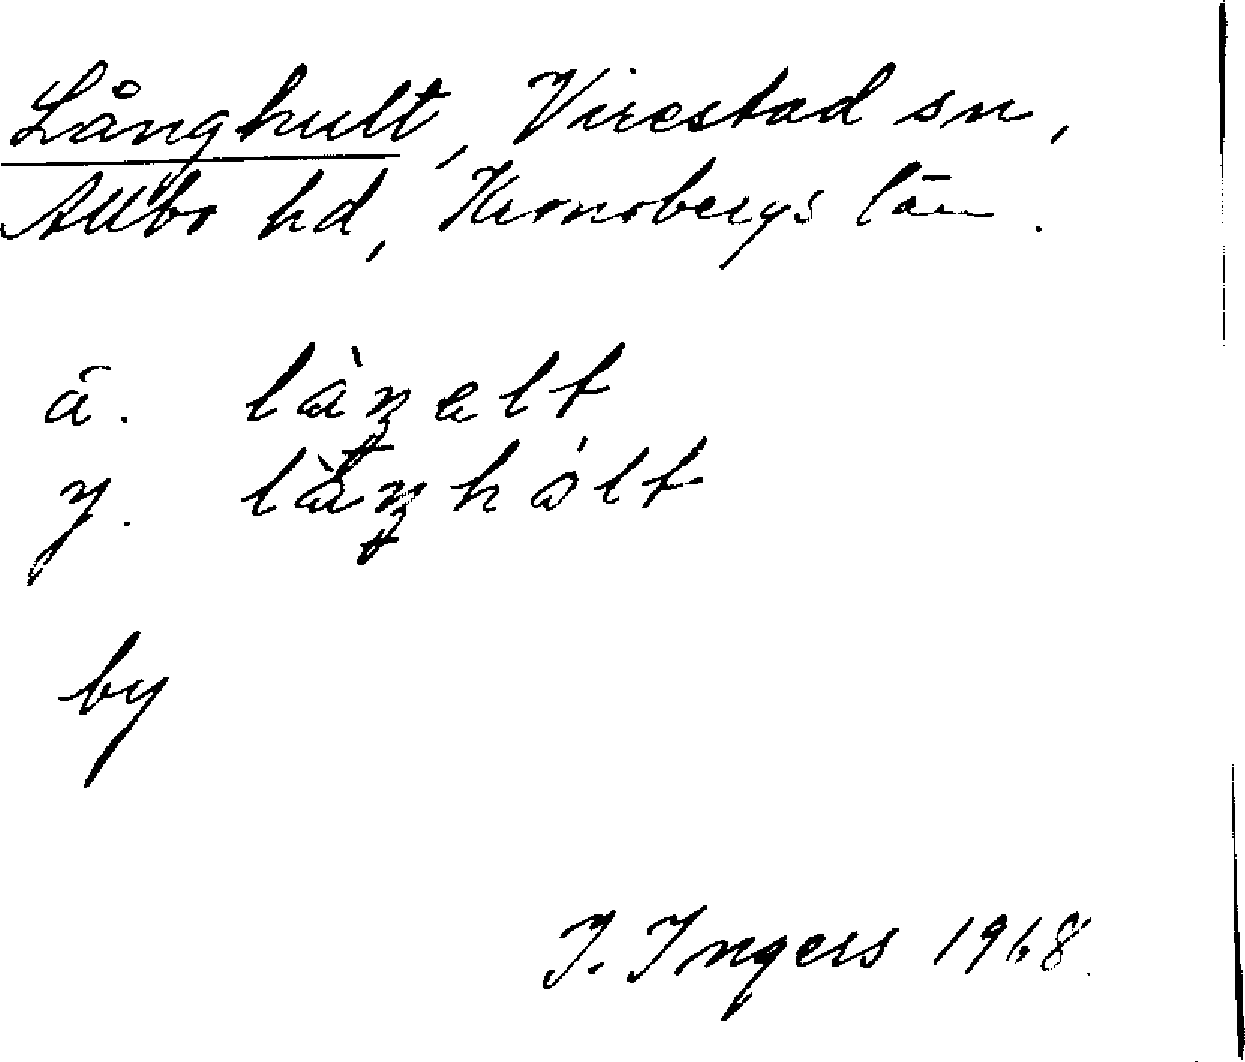 Långhult, Virestad sn,
Allbo hd, Kronobergs län.
ä. làŋelt
y. làŋhòlt
by
I. Ingers 1968.